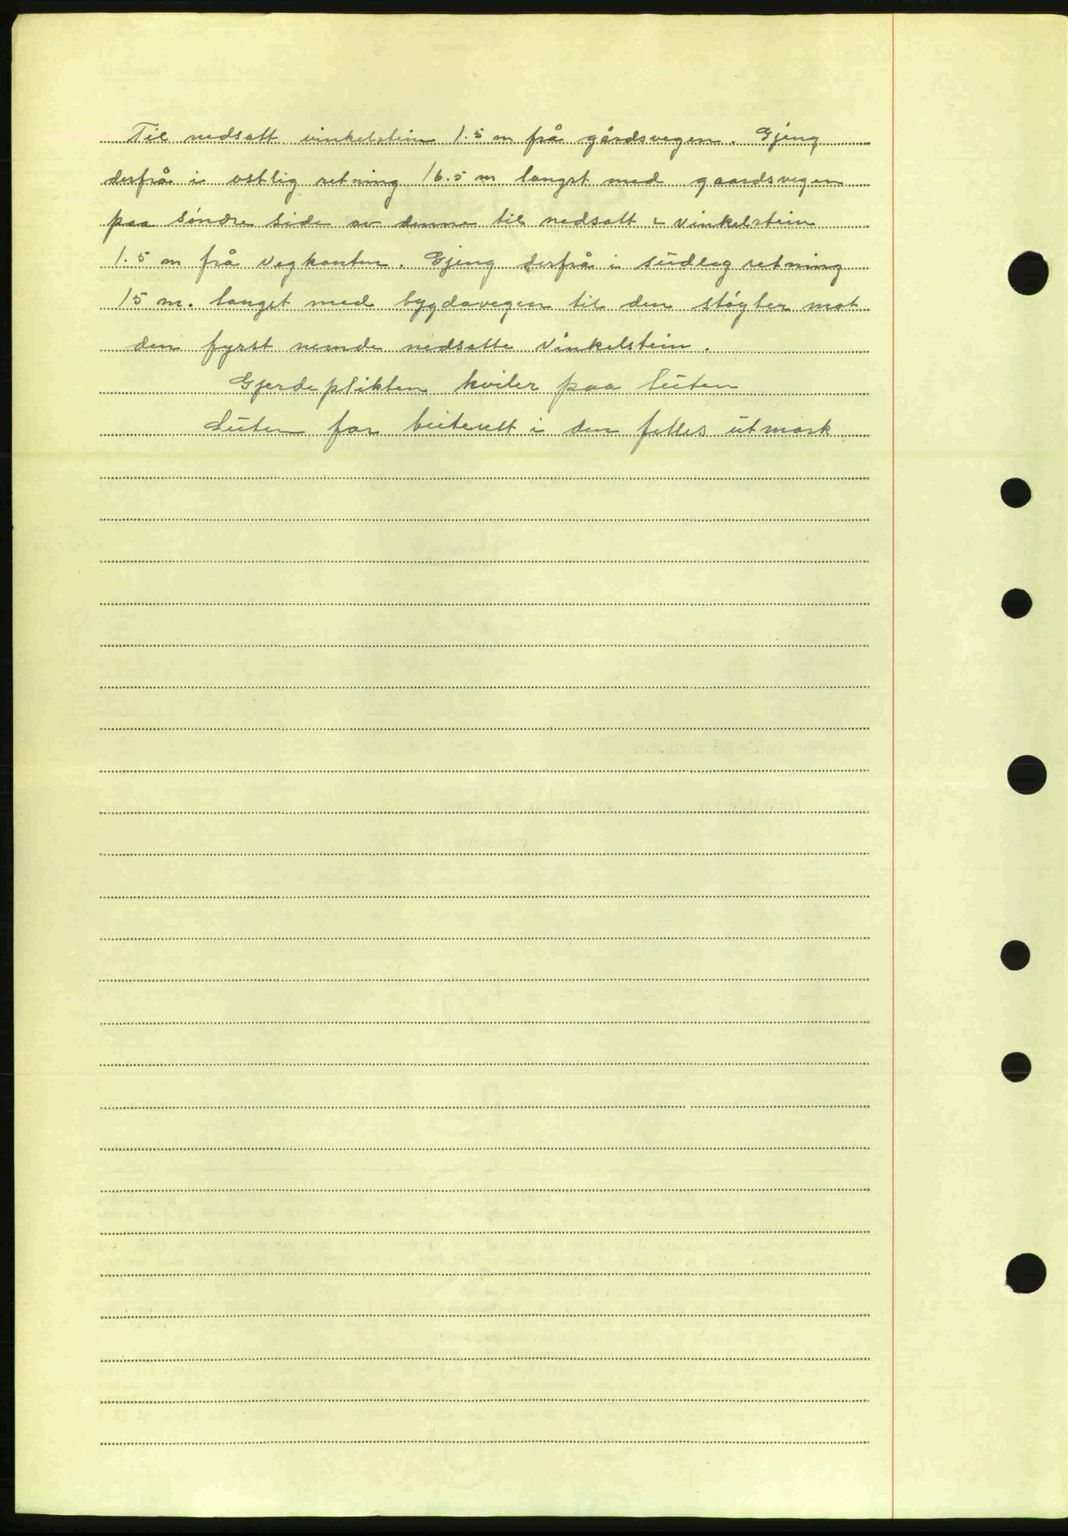 Til nedsatt vinkelstein 1.5 m frå gårdsvegen. Gjeng
derfrå i ostlig retning 16.5 m langst med gaardsvegen
paa söndre side av denne til nedsatt vinkelstein
1.5 m frå vegkanten. Gjeng derfrå i südleg retning
15 m. langst med bygdavegen til den støyter mot
den fyrst nemde nedsatte vinkelstein.
Gjerdeplikten kviler paa luten
Luten far beiterett i den felles utmark